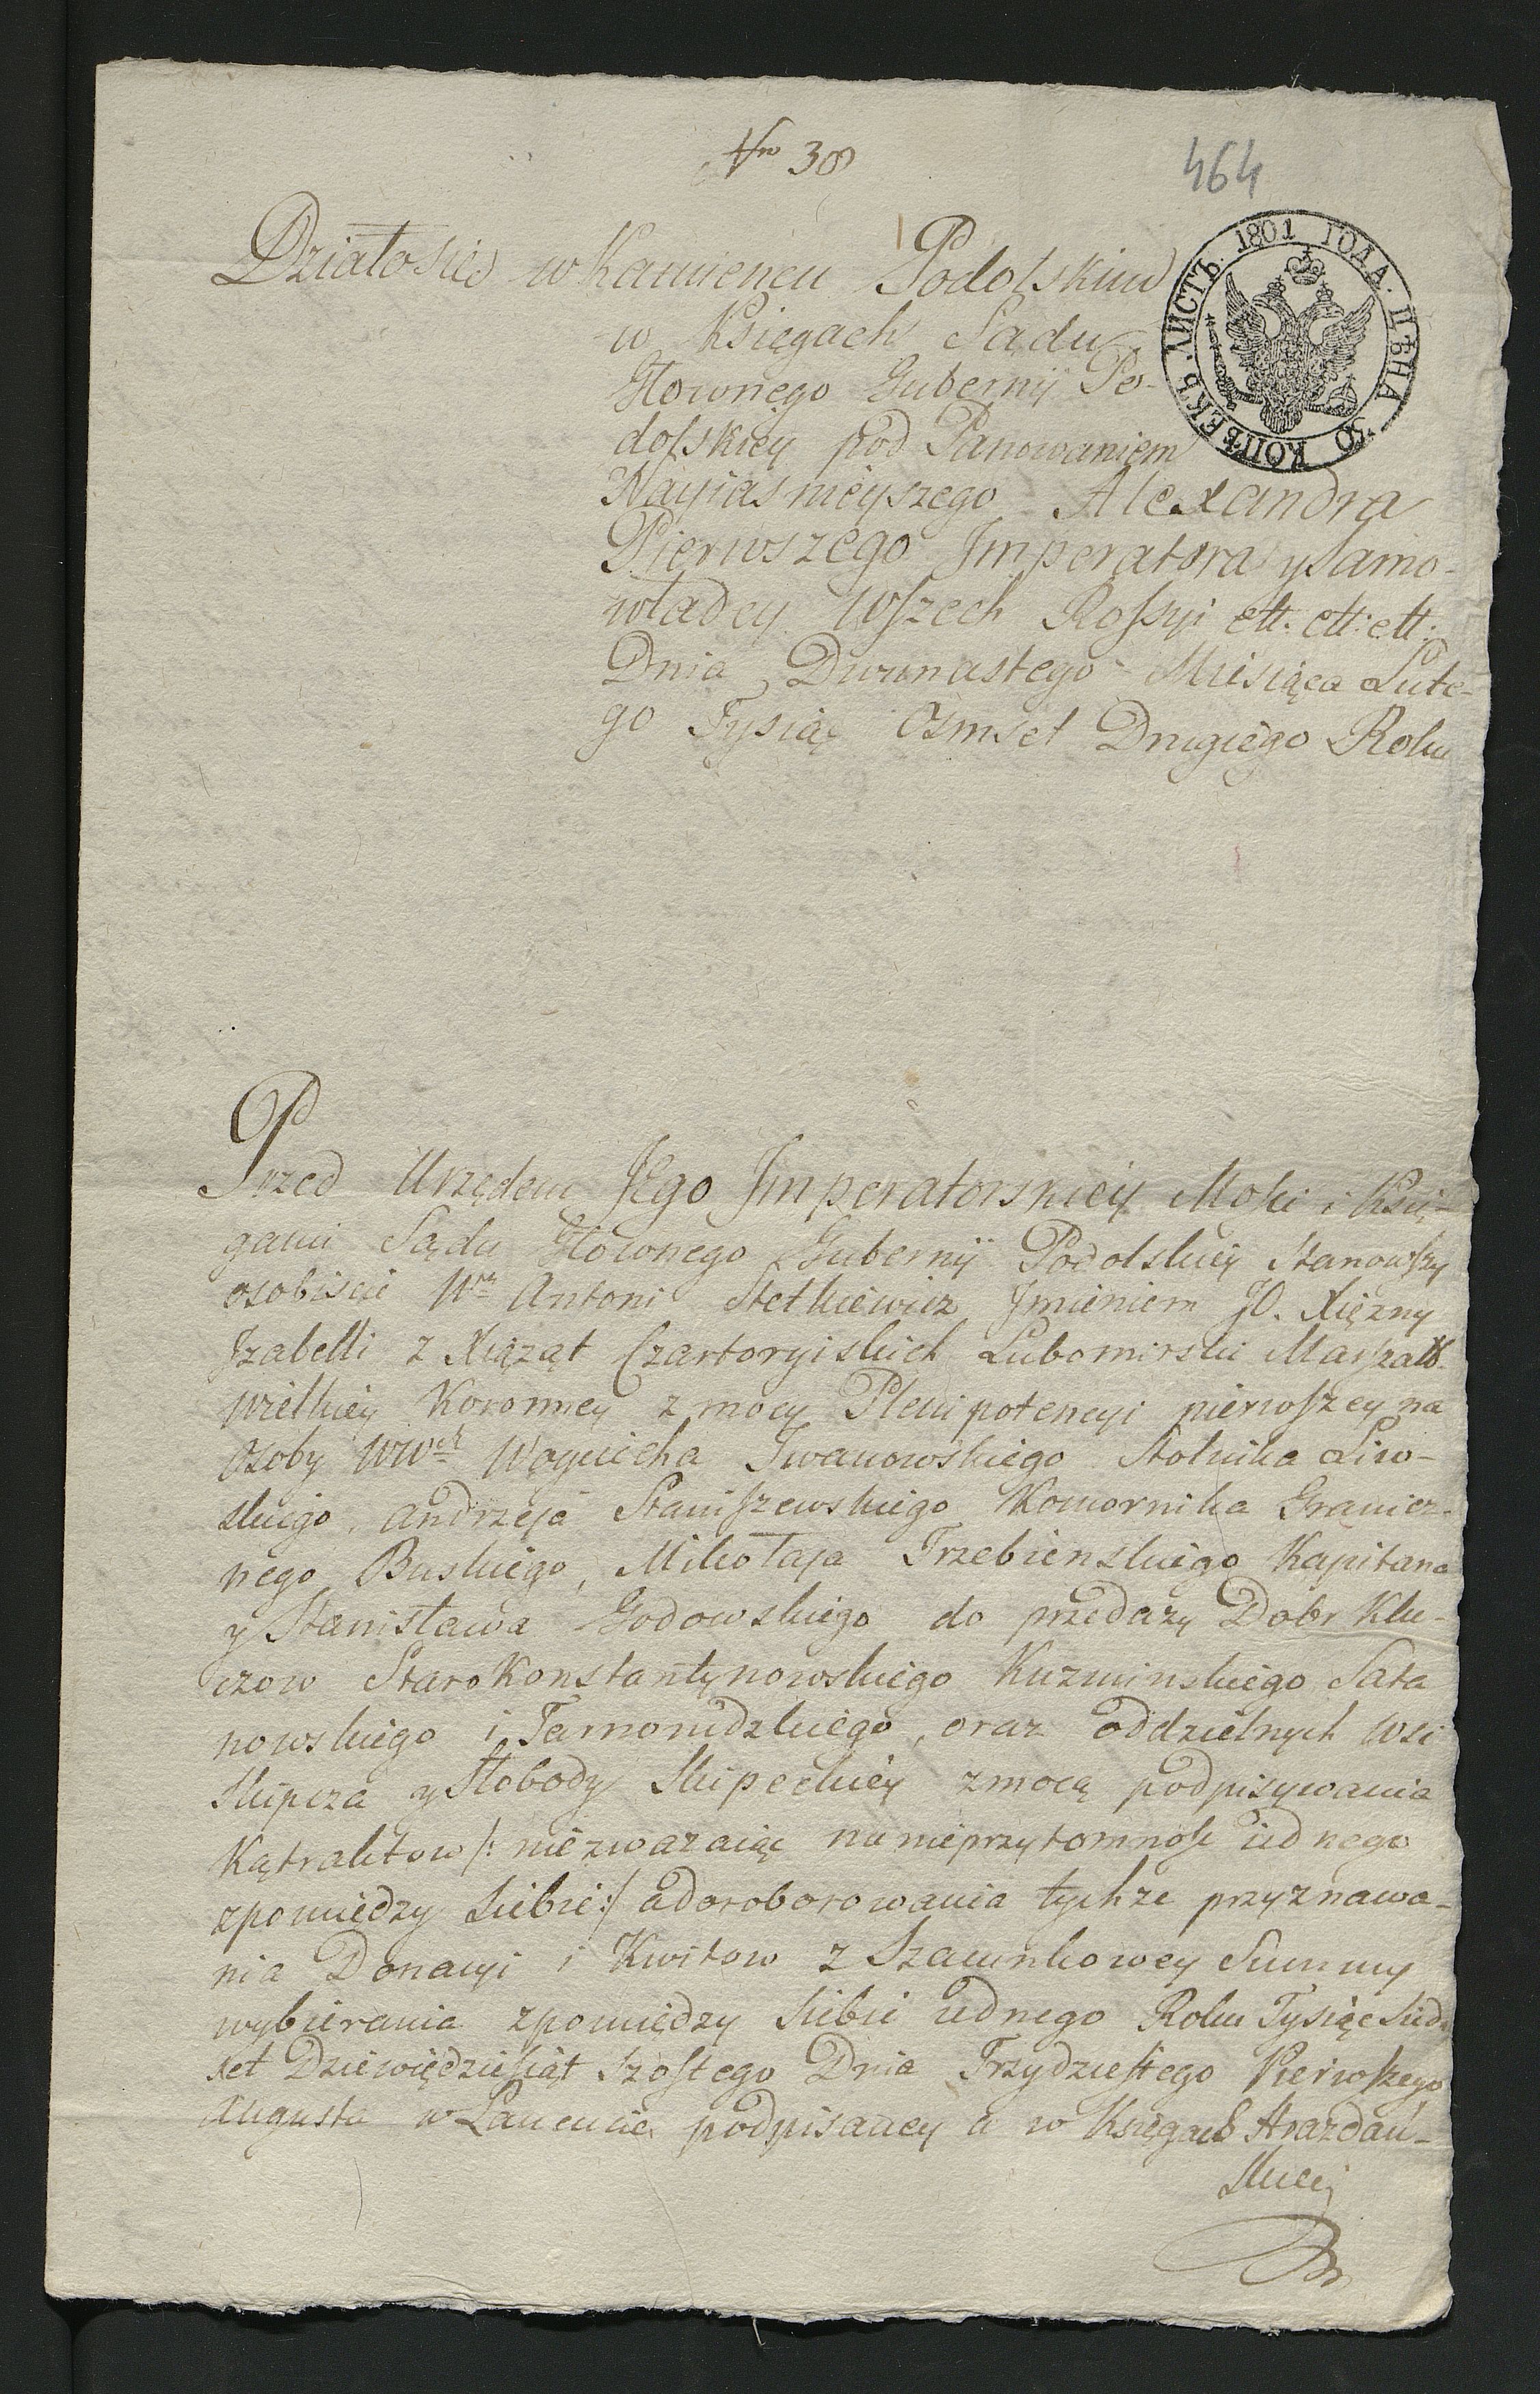 Nro 38
464
1801 ГОДА. ЦѢНА 30 КОПѢЕКЪ. ЛИСТЪ.
Działosię w Kamiencu Podolskim
w Księgach Sądu
Głownego Gubernij Po-
dolskiey pod Panowaniem
Nayiasnieyszego Alexandra
Pierwszego Imperatora y Samo-
władcy Wszech Rossyi ett. ett: ett:
Dnia Dwunastego Miesiąca Lute-
go Tysiąc Osmset Drugiego Roku
Przed Urzędem Jego Imperatorskiey Mości i Księ-
gami Sądu Głownego Gubernij Podolskiey Stanowszy
osobiscie Wny Antoni Stetkiewicz Imieniem JO. Xiężny
Izabelli z Xiążąt Czartoryiskich Lubomirski Marszałk.
wielkiey Koronney z mocy Plenipotencyi pierwszey na
Osoby WWch Woyciecha Iwanowskiego Stolnika Liw-
skiego, Andrzeja Staniszewskiego Komornika Granicz-
nego Buskiego, Mikołaja Trzebienskiego Kapitana
y Stanisława Godowskiego do przedaży Dobr Klu-
czow Starokonstantynowskiego Kuzminskiego Sata
nowskiego i Tarnorudzkiego, oraz oddzielnych Wsi
Skipcza y Słobody Skipeckiey z mocą podpisywania
Kątraktow /: niezwazaiąc na nieprzytomność iednego
zpomiedzy siebie :/ adoroborowania tychze przyznawa-
nia Donacyi i Kwitow z Szacunkowey Summy
wybierania zpomiędzy siebie iednego Roku Tysiąc Sied.
set Dziewiędziesiąt Szostego Dnia Trzydziestego Pierwszego
Augusta w Lancucie podpisaney a w Księgach Hrazdań-
skiej